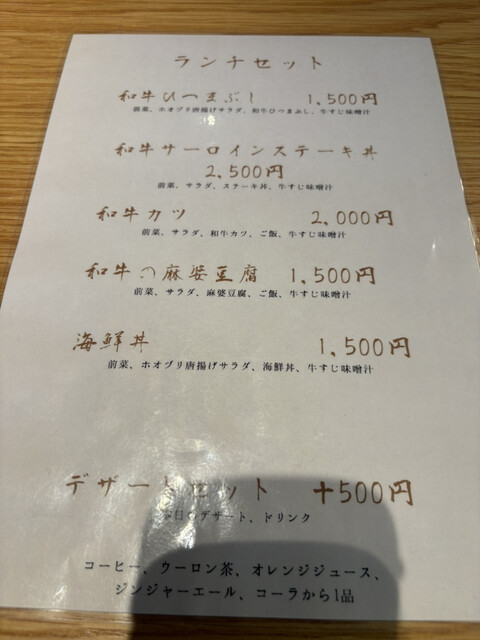 ランチセット
和牛ひつまぶし 1,500円
前菜、ホオヅリ唐揚げサラダ、和牛ひつまぶし、牛すじ味噌汁
和牛サーロインステーキ丼
2,500円
前菜、サラダ、ステーキ丼、牛すじ味噌汁
和牛カツ 2,000円
前菜、サラダ、和牛カツ、ご飯、牛すじ味噌汁
和牛の麻婆豆腐 1,500円
前菜、サラダ、麻婆豆腐、ご飯、牛すじ味噌汁
海鮮丼 1,500円
前菜、ホオヅリ唐揚げサラダ、海鮮丼、牛すじ味噌汁
デザートセット +500円
本日のデザート、ドリンク
コーヒー、ウーロン茶、オレンジジュース、
ジンジャーエール、コーラから1品